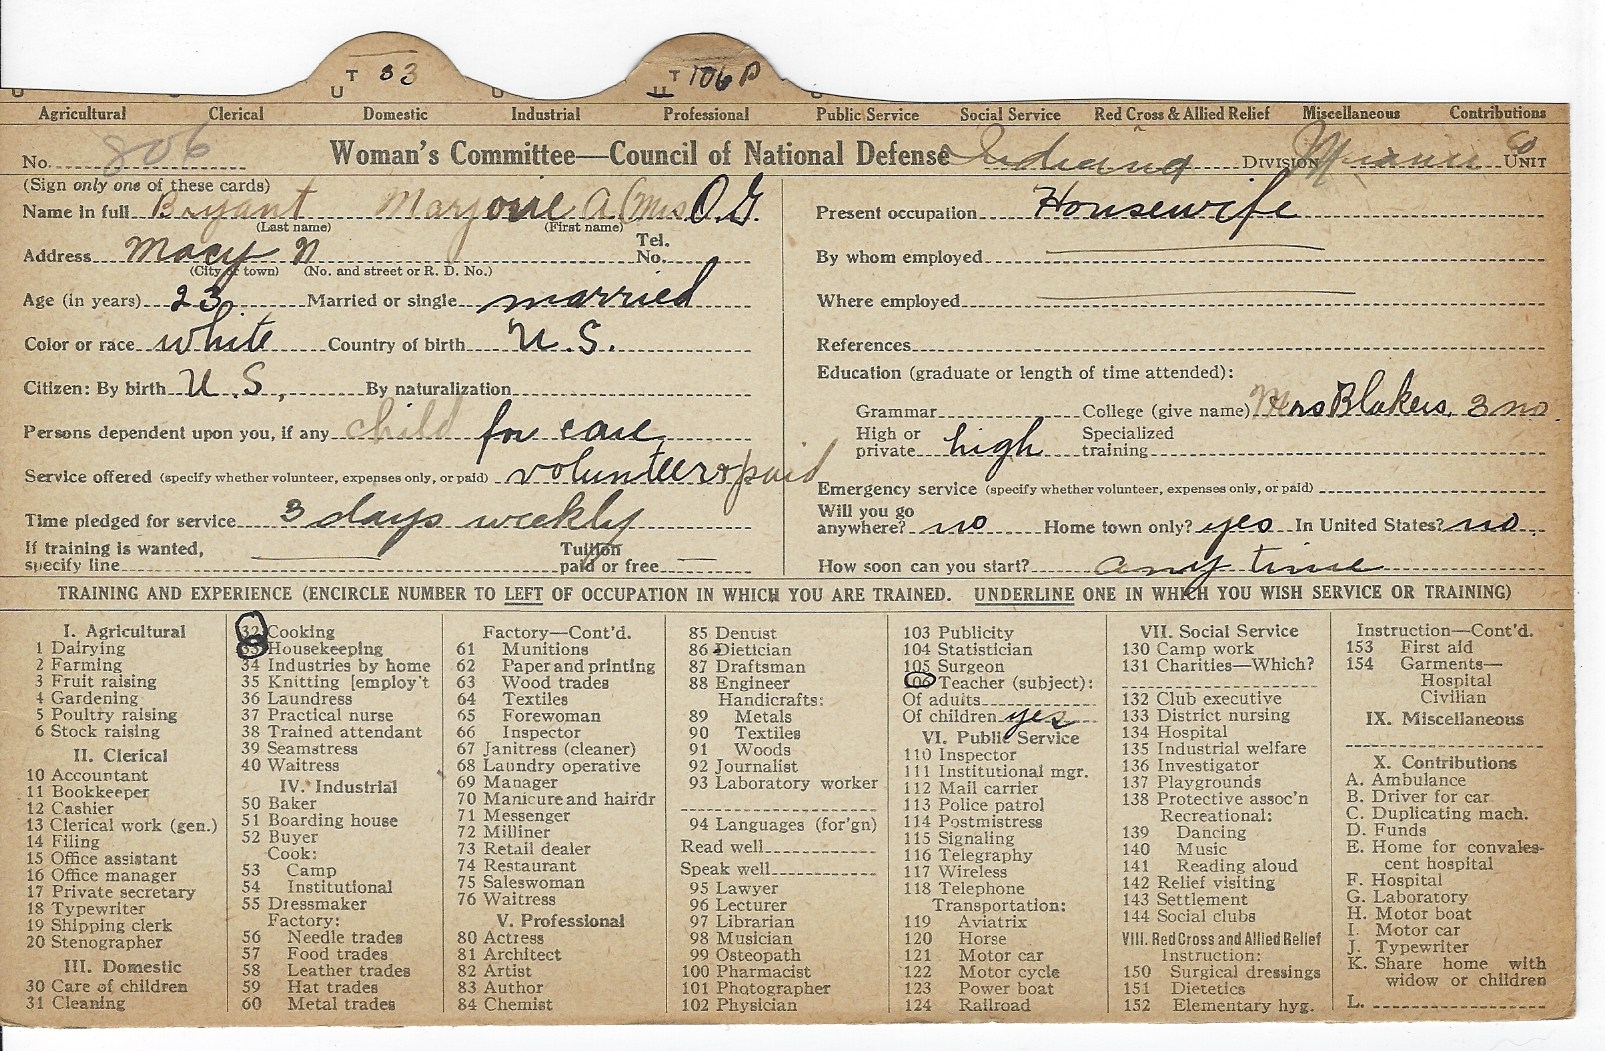 U T 83 U U T 106 P U
Agricultural Clerical Domestic Industrial Professional Public Service Social Service Red Cross & Allied Relief Miscellaneous Contributions
No. 806 Woman's Committee—Council of National Defense Indiana DIVISION UNIT
(Sign only one of these cards)
Name in full Bryant Marjorie A (Mrs O.G.
(Last name) (First name)
Address Macy N Tel. No.
(City or town) (No. and street or R. D. No.)
Age (in years) 23 Married or single married
Color or race white Country of birth U.S.
Citizen: By birth U.S. By naturalization
Persons dependent upon you, if any child for care
Service offered (specify whether volunteer, expenses only, or paid) volunteer & paid
Time pledged for service 3 days weekly
If training is wanted, specify line Tuition paid or free
Present occupation Housewife
By whom employed
Where employed
References
Education (graduate or length of time attended):
Grammar College (give name) Mrs Blakers, 3 mo.
High or private high Specialized training
Emergency service (specify whether volunteer, expenses only, or paid)
Will you go anywhere? no Home town only? yes In United States? no
How soon can you start? any time
TRAINING AND EXPERIENCE (ENCIRCLE NUMBER TO LEFT OF OCCUPATION IN WHICH YOU ARE TRAINED. UNDERLINE ONE IN WHICH YOU WISH SERVICE OR TRAINING)
I. Agricultural
1 Dairying
2 Farming
3 Fruit raising
4 Gardening
5 Poultry raising
6 Stock raising
II. Clerical
10 Accountant
11 Bookkeeper
12 Cashier
13 Clerical work (gen.)
14 Filing
15 Office assistant
16 Office manager
17 Private secretary
18 Typewriter
19 Shipping clerk
20 Stenographer
III. Domestic
30 Care of children
31 Cleaning
32 Cooking
33 Housekeeping
34 Industries by home
35 Knitting [employ't
36 Laundress
37 Practical nurse
38 Trained attendant
39 Seamstress
40 Waitress
IV. Industrial
50 Baker
51 Boarding house
52 Buyer
Cook:
53 Camp
54 Institutional
55 Dressmaker
Factory:
56 Needle trades
57 Food trades
58 Leather trades
59 Hat trades
60 Metal trades
Factory—Cont'd.
61 Munitions
62 Paper and printing
63 Wood trades
64 Textiles
65 Forewoman
66 Inspector
67 Janitress (cleaner)
68 Laundry operative
69 Manager
70 Manicure and hairdr
71 Messenger
72 Milliner
73 Retail dealer
74 Restaurant
75 Saleswoman
76 Waitress
V. Professional
80 Actress
81 Architect
82 Artist
83 Author
84 Chemist
85 Dentist
86 Dietician
87 Draftsman
88 Engineer
Handicrafts:
89 Metals
90 Textiles
91 Woods
92 Journalist
93 Laboratory worker
94 Languages (for'gn)
Read well
Speak well
95 Lawyer
96 Lecturer
97 Librarian
98 Musician
99 Osteopath
100 Pharmacist
101 Photographer
102 Physician
103 Publicity
104 Statistician
105 Surgeon
106 Teacher (subject):
Of adults
Of children yes
VI. Public Service
110 Inspector
111 Institutional mgr.
112 Mail carrier
113 Police patrol
114 Postmistress
115 Signaling
116 Telegraphy
117 Wireless
118 Telephone
Transportation:
119 Aviatrix
120 Horse
121 Motor car
122 Motor cycle
123 Power boat
124 Railroad
VII. Social Service
130 Camp work
131 Charities—Which?
132 Club executive
133 District nursing
134 Hospital
135 Industrial welfare
136 Investigator
137 Playgrounds
138 Protective assoc'n
Recreational:
139 Dancing
140 Music
141 Reading aloud
142 Relief visiting
143 Settlement
144 Social clubs
VIII. Red Cross and Allied Relief
Instruction:
150 Surgical dressings
151 Dietetics
152 Elementary hyg.
Instruction—Cont'd.
153 First aid
154 Garments—
Hospital
Civilian
IX. Miscellaneous
X. Contributions
A. Ambulance
B. Driver for car
C. Duplicating mach.
D. Funds
E. Home for convales-
cent hospital
F. Hospital
G. Laboratory
H. Motor boat
I. Motor car
J. Typewriter
K. Share home with
widow or children
L.